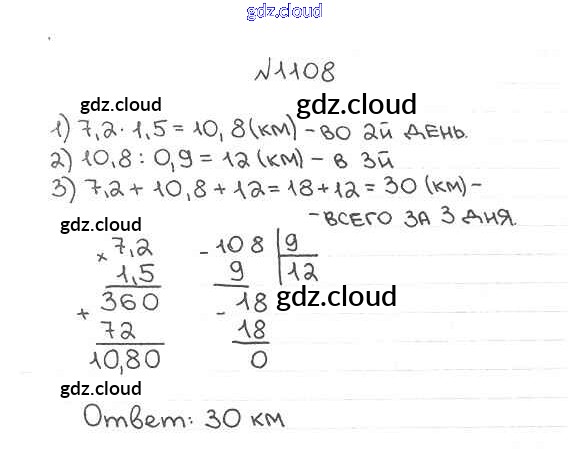 gdz.cloud
№1108
gdz.cloud
gdz.cloud
1) 7,2 · 1,5 = 10,8 (км) – во 2й день.
2) 10,8 : 0,9 = 12 (км) – в 3й
3) 7,2 + 10,8 + 12 = 18 + 12 = 30 (км) –
– всего за 3 дня.
gdz.cloud
× 7,2
1,5
360
+ 72
10,80
- 108 | 9
9 | 12
- 18
18
0
gdz.cloud
gdz.cloud
Ответ: 30 км